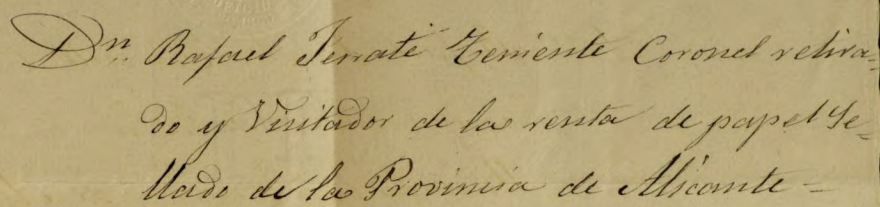 Dn. Rafael Terrate Teniente Coronel retira=
do y Visitador de la renta de papel Se=
llado de la Provincia de Alicante=